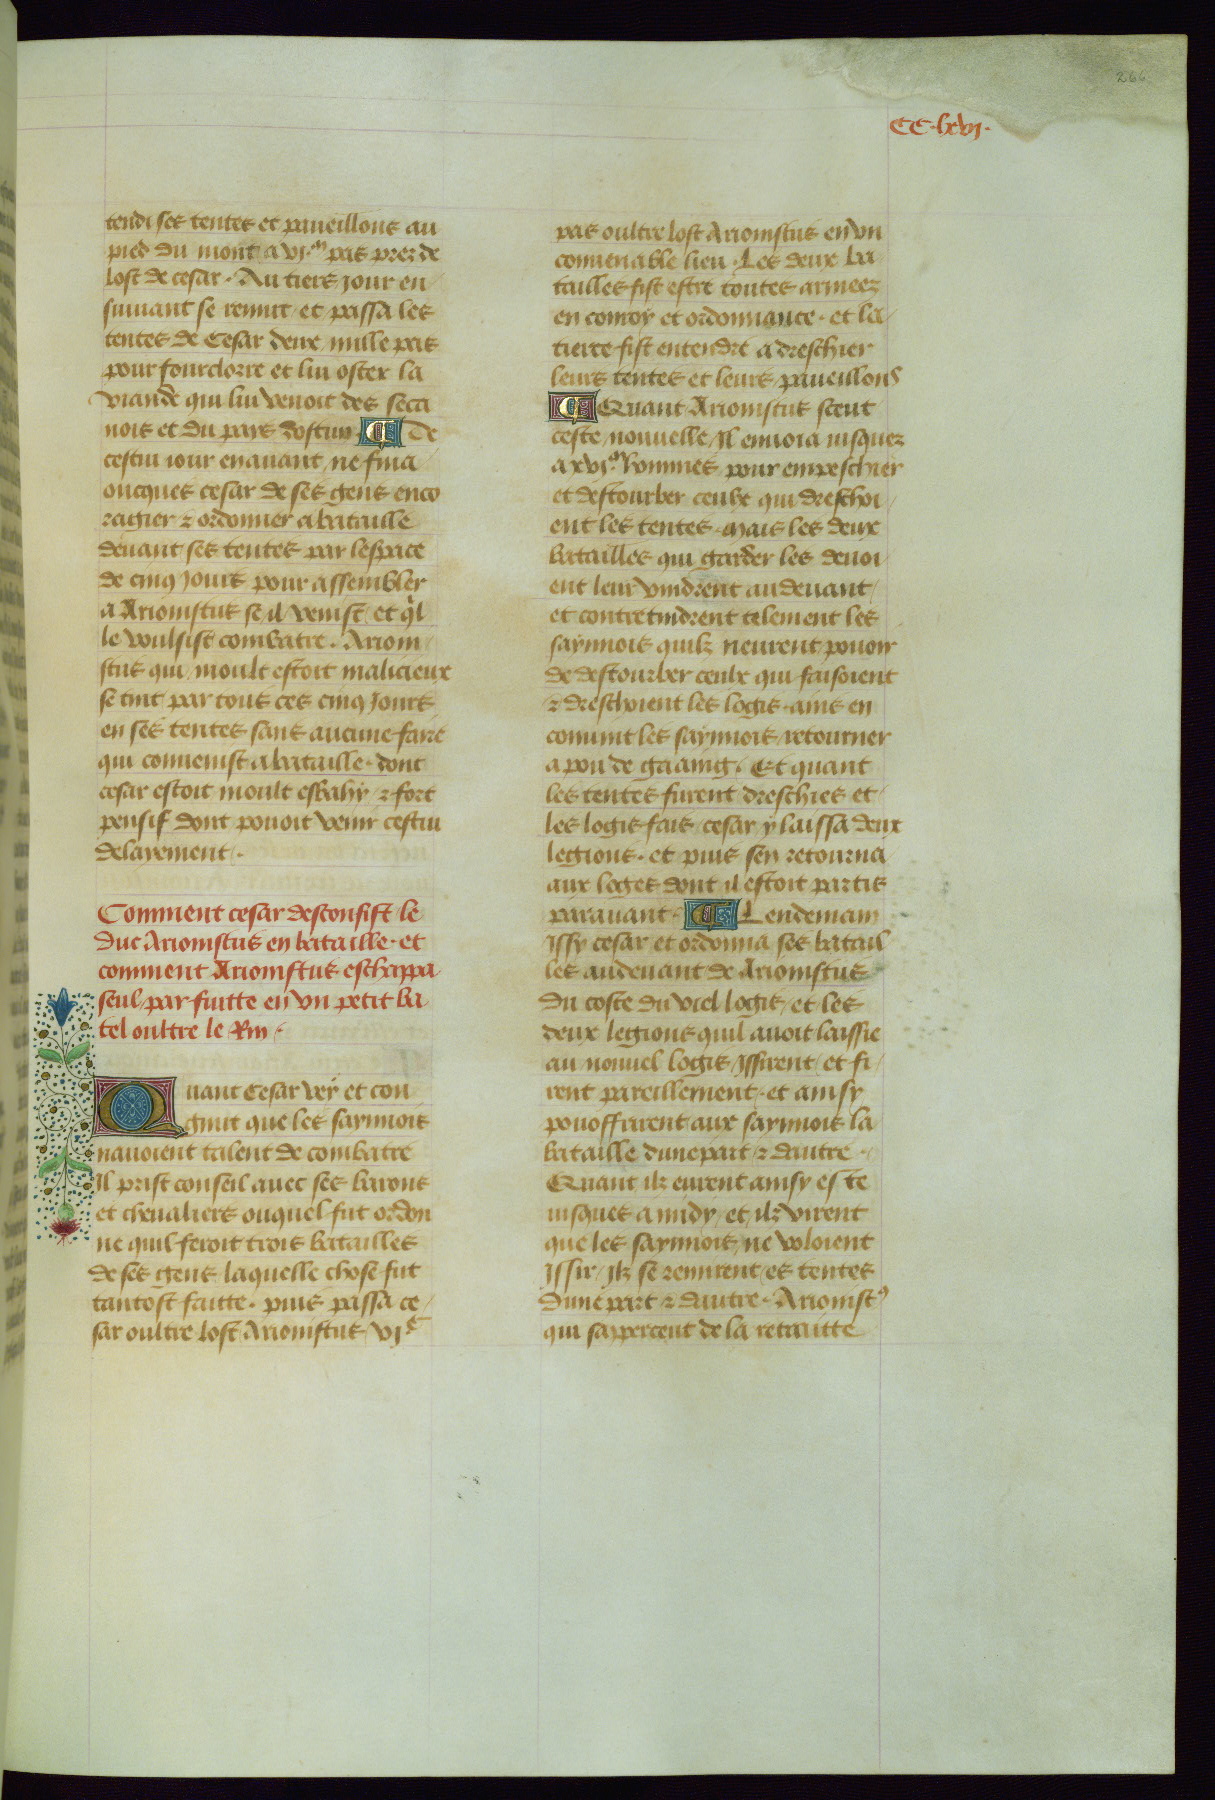 266
CC.lxvj.
tendi ses tentes et paueillons au
pied du mont a vj.m pas prez de
lost de cesar. Au tiers jour en
suiuant se remut et passa les
tentes de Cesar deux mille pas
pour fourclorre et lui oster la
viande qui lui venoit des seca
nois et du pais dostun De
cestui iour enauant ne fina
oncques cesar de ses gens enco
ragier & ordonner a bataille
deuant ses tentes par lespace
de cinq jours pour assembler
a Arionistus se il venist et ql
le voulsist combatre. Arioni
stus qui moult estoit malicieux
se tint par tous ces cinq jours
en ses tentes sans aucune faire
qui conuenist a bataille. dont
cesar estoit moult esbahy & fort
pensif dont pouoit venir cestui
delayement.
Comment cesar desconfist le
duc Arionistus en bataille. et
comment Arionistus eschappa
seul par fuitte en vn petit ba
tel oultre le Rin.
Quant Cesar vey et con
gnut que les saynnois
nauoient talent de combatre
Il prist conseil auec ses barons
et cheualiers ouquel fut ordon
ne quil feroit trois batailles
de ses gens laquelle chose fut
tantost faitte. puis passa ce
sar oultre lost Arionistus vjc
pas oultre lost Arionistus en vn
conuenable lieu. Les deux ba
tailles fist estre toutes armeez
en conroy et ordonnance. et la
tierce fist entendre a dreschier
leurs tentes et leurs paueillons
Quant Arionistus sceut
ceste nouuelle Il enuoia iusquez
a xvj.m hommes pour empeschier
et destourber ceulx qui dreschoi
ent les tentes. mais les deux
batailles qui garder les deuoi
ent leur vindrent audeuant
et contretindrent telement les
saynnois quilz neurent pouoir
de destourber ceulx qui faisoient
& dreschoient les logis. ains en
conuint les saynnois retourner
a pou de gaaing. Et quant
les tentes furent dreschies et
les logis fais cesar y laissa deux
legions. et puis sen retourna
aux loges dont il estoit partis
parauant. Lendemain
Issy cesar et ordonna ses batail
les audeuant de Arionistus
du coste du viel logis et les
deux legions quil auoit laissie
au nouuel logis Issirent et fi
rent pareillement. et ainsy
pouoffrirent aux saynnois la
bataille dunepart & dautre.
Quant ilz eurent ainsy este
iusques a midy et ilz virent
que les saynnois ne voloient
Issir Ilz se remirent es tentes
dune part & dautre. Arionist9
qui sappercent de la retraitte